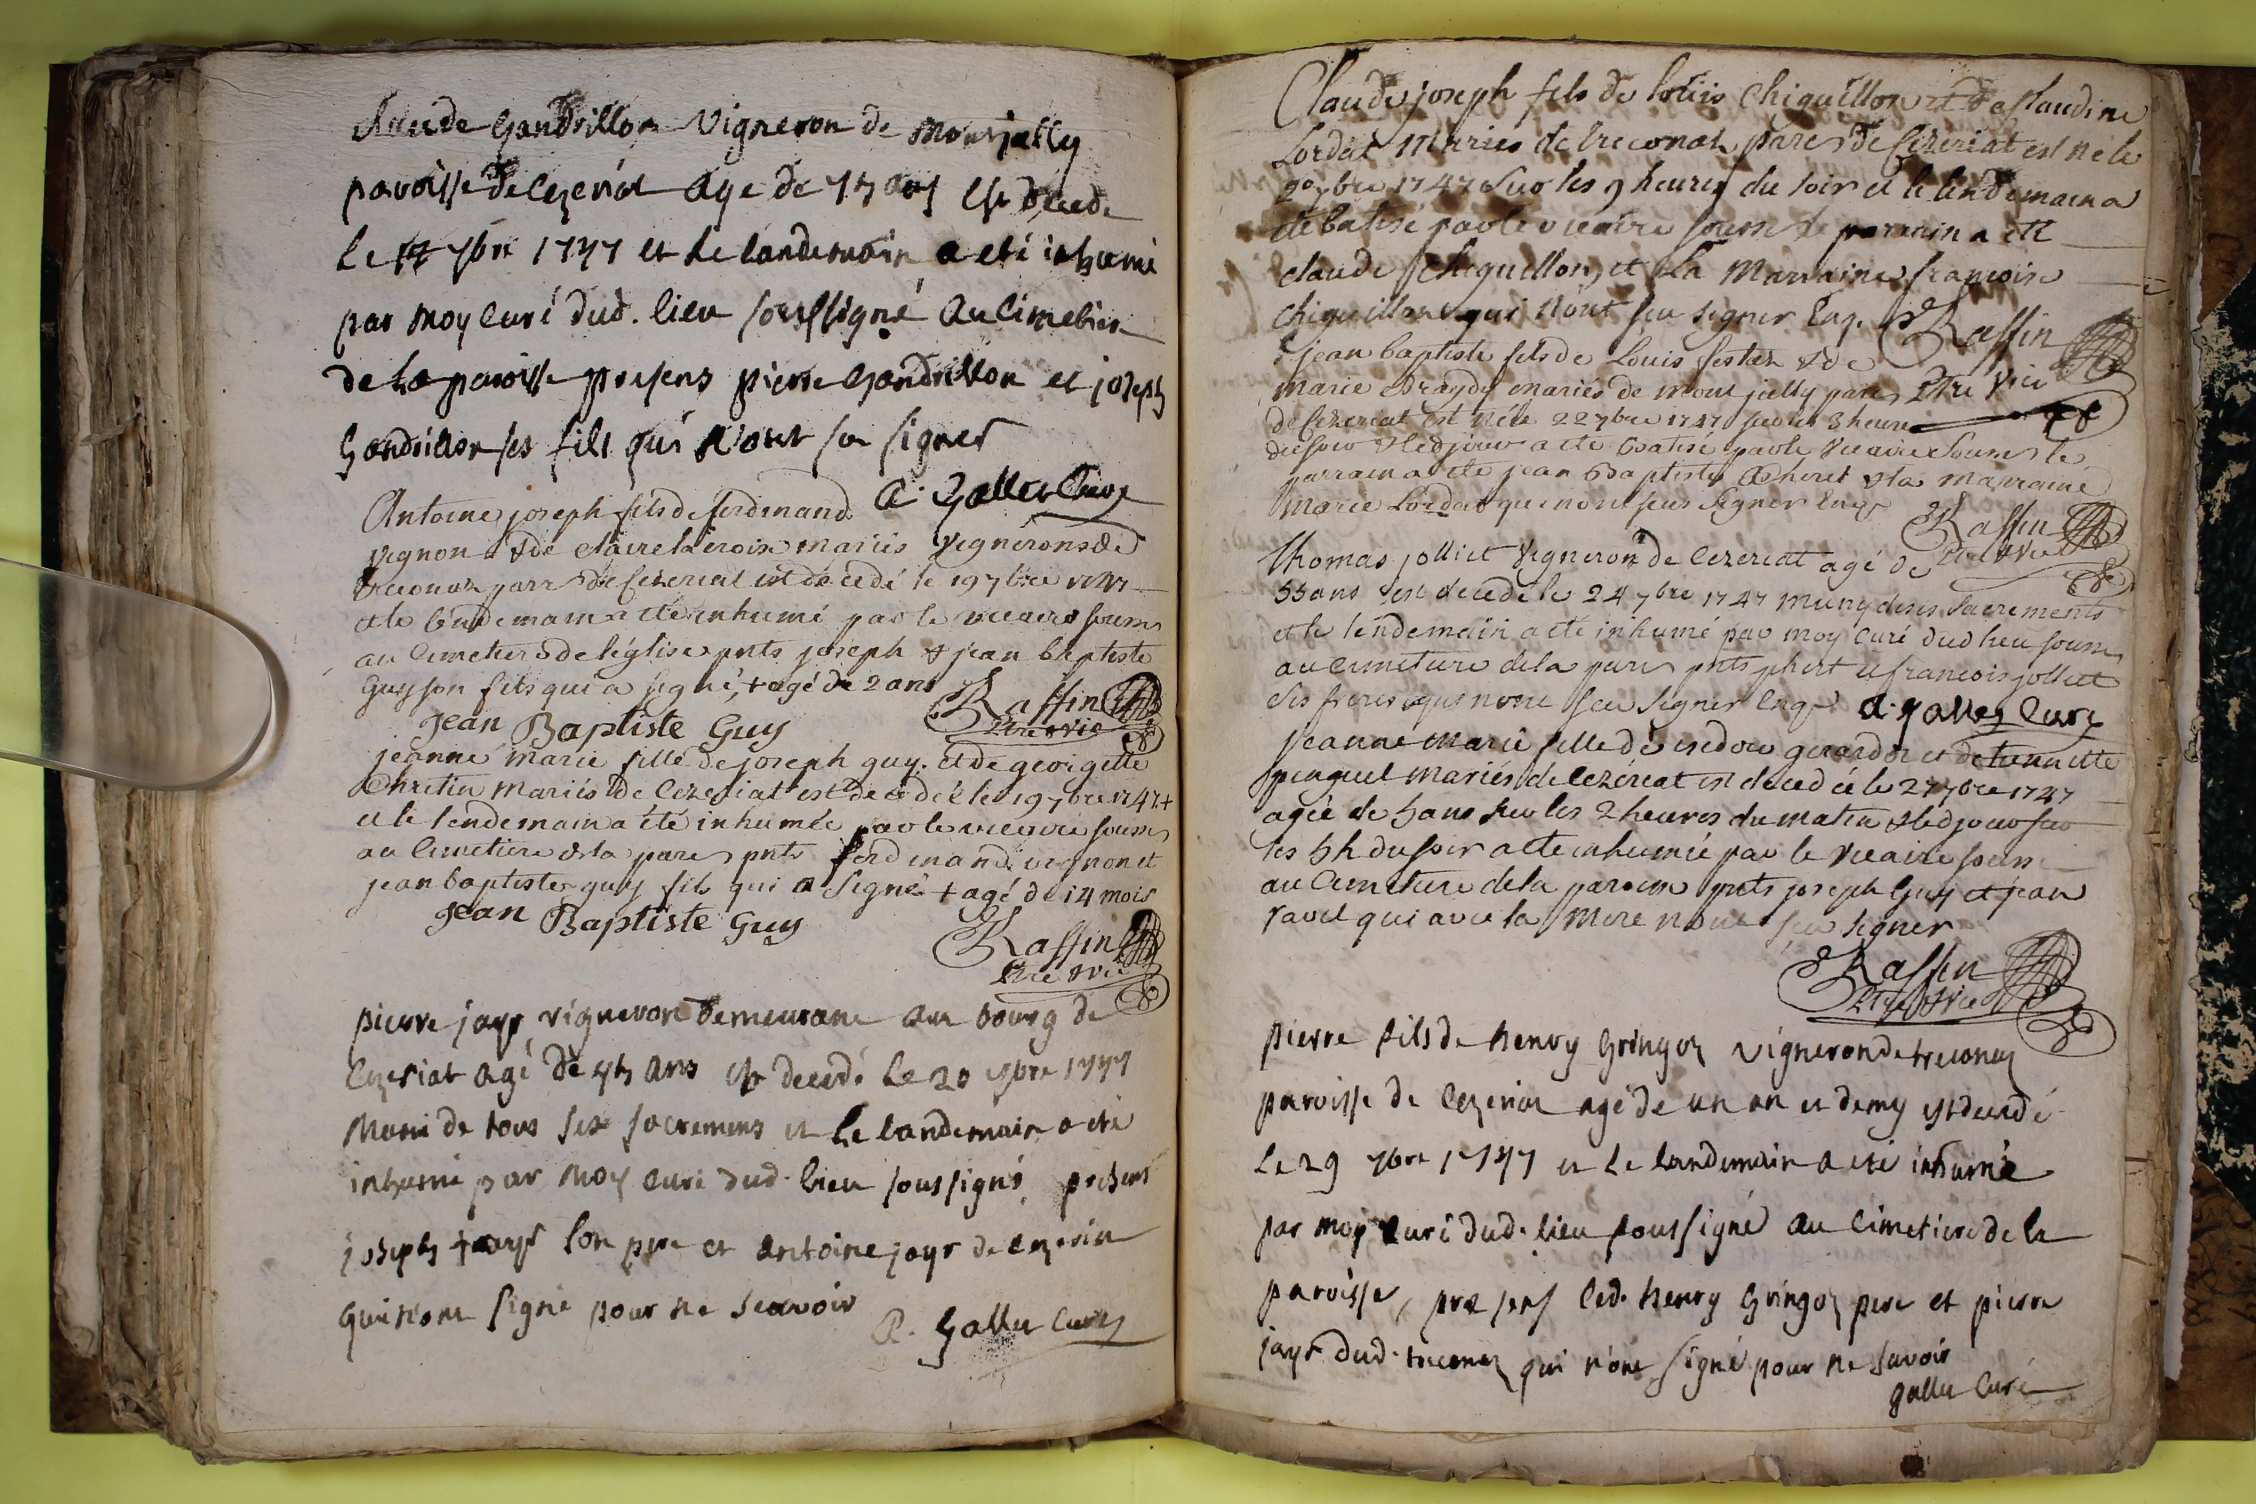 claude Gandrillon Vigneron de Montjully
paroisse de Cezeriat age de 75 ans est decede
Le 17 7bre 1747 et le landemain a eté inhumé
par moy curé dud. lieu soussigné au Cimetiere
de la paroisse presens pierre Gandrillon et joseph
Gandrillon ses fils qui n'ont su signer
A. Gallet Curé
Antoine joseph fils de ferdinand
vignon & de claire lacroix mariés vignerons de
treconaz parr de Cezeriat est décedé le 19 7bre 1747
et le lendemain a eté inhumé par le vicaire souss
au Cimetiere de l'église pnts joseph & jean baptiste
Guy son fils qui a signé, + agé de 2 ans
Raffin
Ptre & Vic
Jean Baptiste Guy
jeanne marie fille de joseph guy. et de georgette
Chretien mariés de Cezeriat est decedée le 19 7bre 1747 +
et le lendemain a été inhumée par le vicaire souss
au Cimetiere de la parr pnts ferdinand vignon et
jean baptiste guy fils qui a signé + agé de 14 mois
Jean Baptiste Guy
Raffin
Ptre & Vic
pierre jayr vigneron demeurant au bourg de
Cezeriat agé de ans est decedé le 20 7bre 1747
Muni de tous ses sacremens et le landemain a eté
inhumé par moy curé dud. lieu soussigné presens
joseph jayr son pere et antoine jayr de
qui n'ont signé pour ne scavoir
A. Gallet Curé
Claude joseph fils de loüis Chiquillon et de claudine
Lordat mariés de treconaz parr de Cezeriat est né le
20 7bre 1747 sur les 9 heures du soir et le lendemain a
eté batisé par le vicaire souss le parrain a eté
claude Chiquillon, et la Marraine francoise
Chiquillon qui n'ont seu signer Enq.
Raffin
Ptre Vic
jean baptiste fils de Louis & de
marie mariés de mont jully parr
de Cezeriat est né le 22 7bre 1747 sur les 3 heures
du soir & led jour a eté batisé par le Vicaire souss le
parrain a eté jean Baptiste & la marraine
Marie Lordat qui n'ont seus signer enqs
Raffin
Ptre & Vic
thomas jolliet Vigneron de Cezeriat agé de
55 ans est decedé le 24 7bre 1747 muny de ses Sacrements
et le lendemain a eté inhumé par moy Curé dud lieu souss
au cimetiere de la parr pnts et francois jolliet
ses freres qui n'ont seu signer Enq.
A. Gallet Curé
jeanne marie fille de et de
mariés de Cezériat est decedée le 27 7bre 1747
agée de 5 ans sur les 2 heures du matin & led jour sur
les 5h du soir a eté inhumée par le vicaire souss
au Cimetiere de la paroisse pnts joseph Guy et jean
ravet qui avec la Mere n'ont seu signer
Raffin
Ptre & Vic
pierre fils de henry Gringoz vigneron de treconaz
paroisse de Cezeriat agé de un an et demy est decedé
Le 29 7bre 1747 et le landemain a eté inhumé
par moy curé dud. lieu soussigné au cimetiere de la
paroisse, presens led. henry Gringoz pere et pierre
jayr dud. treconaz qui n'ont signé pour ne savoir
Gallet Curé